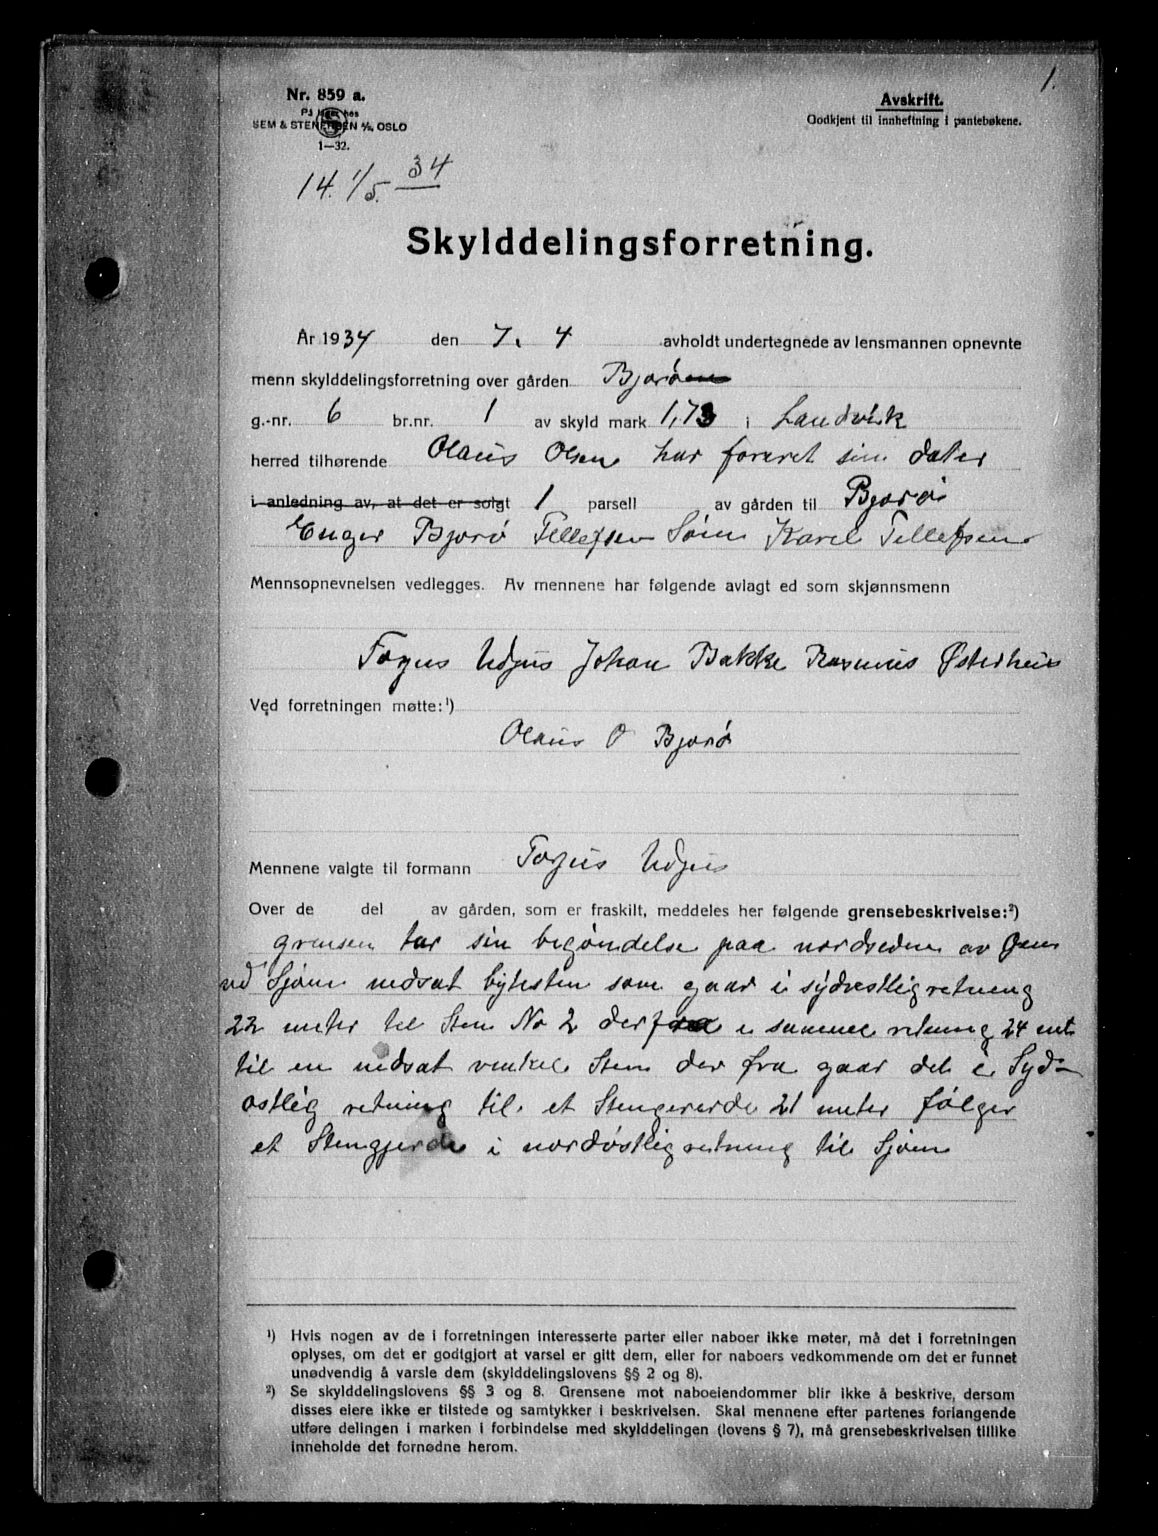 1.
Nr. 859 a.
Avskrift.
På lager hos
Godkjent til innheftning i pantebøkene.
SEM & STENERSEN A/S, OSLO
1—32.
14. 1/5. 34
Skylddelingsforretning.
År 1934 den 7. 4 avholdt undertegnede av lensmannen opnevnte
menn skylddelingsforretning over gården Bjorøen
g.-nr. 6 br.nr. 1 av skyld mark 1,73 i Landvik
herred tilhørende Olaus Olsen har foræret sin dater
i anledning av, at det er solgt 1 parsell av gården til Bjorøi
Enger Bjorø Tellefsen Søm Karel Tellefsen
Mennsopnevnelsen vedlegges. Av mennene har følgende avlagt ed som skjønnsmenn
Tarjus Udjus Johan Bakke Rasmus Østerhus
Ved forretningen møtte:¹)
Olaus O Bjorø
Mennene valgte til formann Tarjus Udjus
Over de del av gården, som er fraskilt, meddeles her følgende grensebeskrivelse:²)
grensen tar sin begøndelse paa nordseden av
ved Sjøen nedsat bytesten som gaar i sydvestlig retning
22 meter til Sten No 2 derfra i samme retning 24 met
til en nedsat vinkel Sten der fra gaar det i Syd-
ostlig retning til et Stengererde 21 meter følger
et Stengjerde i nordøstlig retning til Sjøen
¹) Hvis nogen av de i forretningen interesserte parter eller naboer ikke møter, må det i forretningen
oplyses, om det er godtgjort at varsel er gitt dem, eller for naboers vedkommende om det er funnet
unødvendig å varsle dem (skylddelingslovens §§ 2 og 8).
²) Se skylddelingslovens §§ 3 og 8. Grensene mot naboeiendommer blir ikke å beskrive, dersom
disses eiere ikke er tilstede og samtykker i beskrivelsen. Skal mennene efter partenes forlangende
utføre delingen i marken i forbindelse med skylddelingen (lovens § 7), må grensebeskrivelsen tillike
inneholde det fornødne herom.